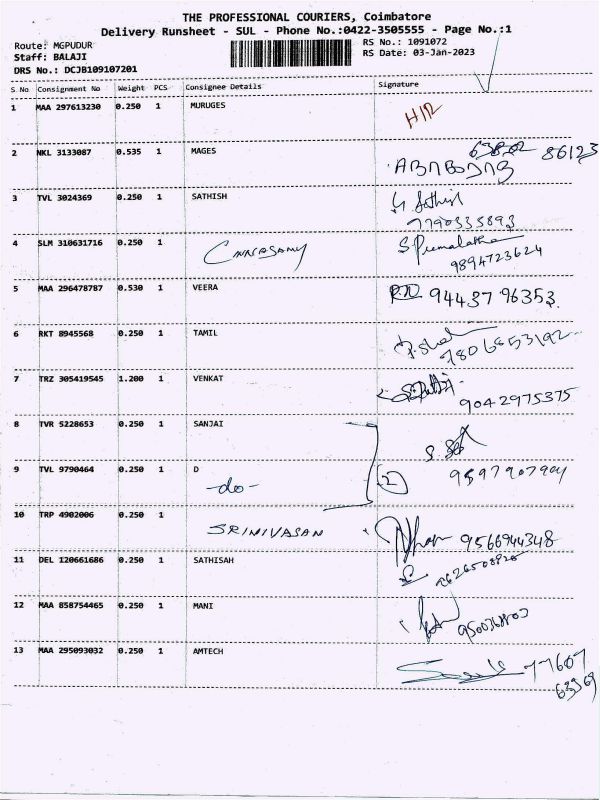 THE PROFESSIONAL COURIERS, Coimbatore
Delivery Runsheet - SUL - Phone No.:0422-3505555 - Page No.:1
Route: MGPUDUR RS No.: 1091072
Staff: BALAJI RS Date: 03-Jan-2023
DRS No.: DCJB109107201
S No Consignment No Weight PCS Consignee Details Signature
1 MAA 297613230 0.250 1 MURUGES
2 NKL 3133087 0.535 1 MAGES 86123
3 TVL 3024369 0.250 1 SATHISH
7790335893
4 SLM 310631716 0.250 1 S Premalatha
9894723624
5 MAA 296478787 0.530 1 VEERA 94437 96353
6 RKT 8945568 0.250 1 TAMIL
7806853192
7 TRZ 305419545 1.200 1 VENKAT
9042975375
8 TVR 5228653 0.250 1 SANJAI
9 TVL 9790464 0.250 1 D
-do- 2 9597907904
10 TRP 4902006 0.250 1
SRINIVASAN 9566944348
11 DEL 120661686 0.250 1 SATHISAH
12 MAA 858754465 0.250 1 MANI
13 MAA 295093032 0.250 1 AMTECH 77607
63969